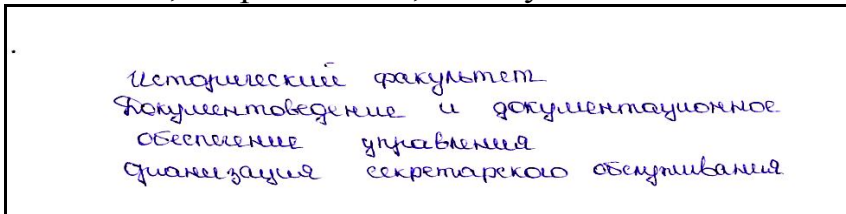 .
Исторический факультет
Документоведение и документационное
обеспечение управления
секретарского обслуживания